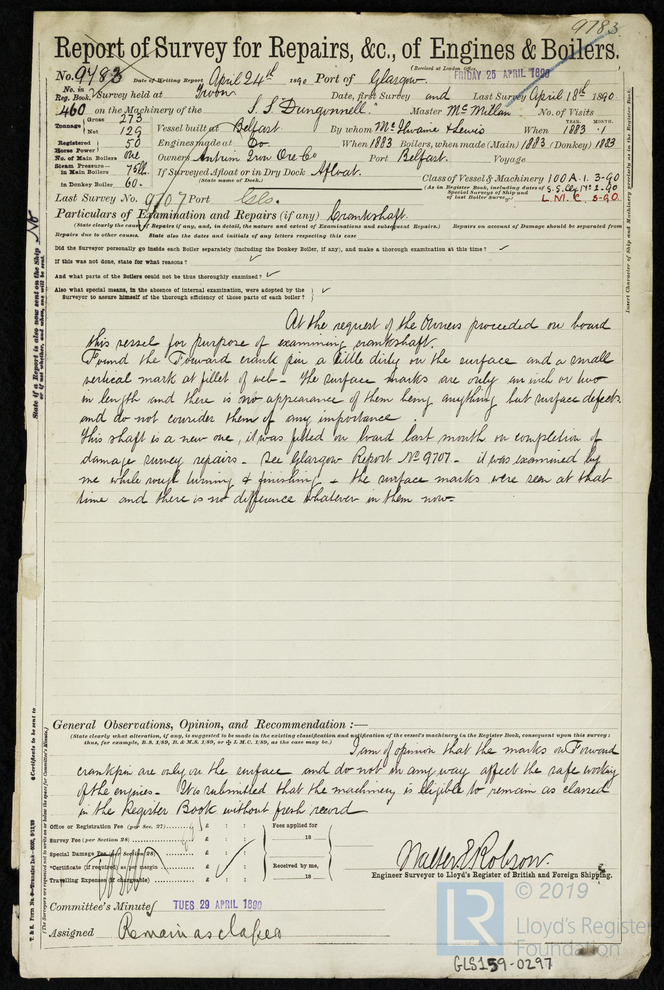 9783
Report of Survey for Repairs, &c., of Engines & Boilers.
(Revised at London Office
FRIDAY 25 APRIL 1890
No. 9783 Date of Writing Report April 24th 1890 Port of Glasgow.
No. in Reg. Book. Survey held at Troon Date, first Survey and Last Survey April 18th 1890.
460 on the Machinery of the S.S. "Dungonnell." Master McMillan No. of Visits
Tonnage Gross 273 Net 129 Vessel built at Belfast By whom McIlwaine & Lewis When YEAR. 1883 MONTH. 1
Registered Horse Power 50 Engines made at Do When 1883 Boilers, when made (Main) 1883 (Donkey) 1883
No. of Main Boilers One Owners Antrim Iron Ore Co Port Belfast. Voyage
Steam Pressure in Main Boilers 75lb. If Surveyed Afloat or in Dry Dock Afloat.
(State name of Dock.)
in Donkey Boiler 60. Class of Vessel & Machinery 100 A.1. 3-90
(As in Register Book, including dates of Special Surveys of Ship and of last Boiler Survey) S.S. No. 2-90
L.M.C. 3-90
Last Survey No. 9707 Port Gls.
Particulars of Examination and Repairs (if any) Crankshaft.
(State clearly the cause of Repairs if any, and, in detail, the nature and extent of Examinations and subsequent Repairs.) Repairs on account of Damage should be separated from
Repairs due to other causes. State also the dates and initials of any letters respecting this case
Did the Surveyor personally go inside each Boiler separately (including the Donkey Boiler, if any), and make a thorough examination at this time?
If this was not done, state for what reasons?
And what parts of the Boilers could not be thus thoroughly examined?
Also what special means, in the absence of internal examination, were adopted by the
Surveyor to assure himself of the thorough efficiency of those parts of each boiler?
At the request of the Owners proceeded on board
this vessel for purpose of examining crankshaft.
Found the Forward crank pin a little dirty on the surface and a small
vertical mark at fillet of web - the surface marks are only an inch or two
in length and there is no appearance of them being anything but surface defects
and do not consider them of any importance.
This shaft is a new one, it was fitted on board last month on completion of
damage survey repairs - See Glasgow Report No 9707 - it was examined by
me while rough turning & finishing - the surface marks were seen at that
time and there is no difference whatever in them now.
General Observations, Opinion, and Recommendation :—
(State clearly what alteration, if any, is suggested to be made in the existing classification and notification of the vessel's machinery in the Register Book, consequent upon this survey:
thus, for example, B.S. 1/89, B. & M.S. 1/89, or ✠ L.M.C. 1/89, as the case may be.)
I am of opinion that the marks on Forward
crankpin are only on the surface and do not in any way affect the safe working
of the engines - It is submitted that the machinery is eligible to remain as classed
in the Register Book without fresh record
Office or Registration Fee (per Sec. 27) £ : :
Survey Fee (per Section 28) £ : :
Special Damage Fee (per Section 28) £ : :
Certificate (if required) as per margin £ : :
Travelling Expenses (if chargeable) £ : :
Fees applied for
18
Received by me,
18
Walter E Robson.
Engineer Surveyor to Lloyd's Register of British and Foreign Shipping.
Committee's Minute TUES 29 APRIL 1890
Assigned Remain as classed
State if a Report is also now sent on the Ship No
Insert Character of Ship and Machinery precisely as in the Register Book.
Certificates to be sent to
(The Surveyors are requested not to write on or below the space for Committee's Minute.)
LR
© 2019
Lloyd's Register
Foundation
GLS159-0297